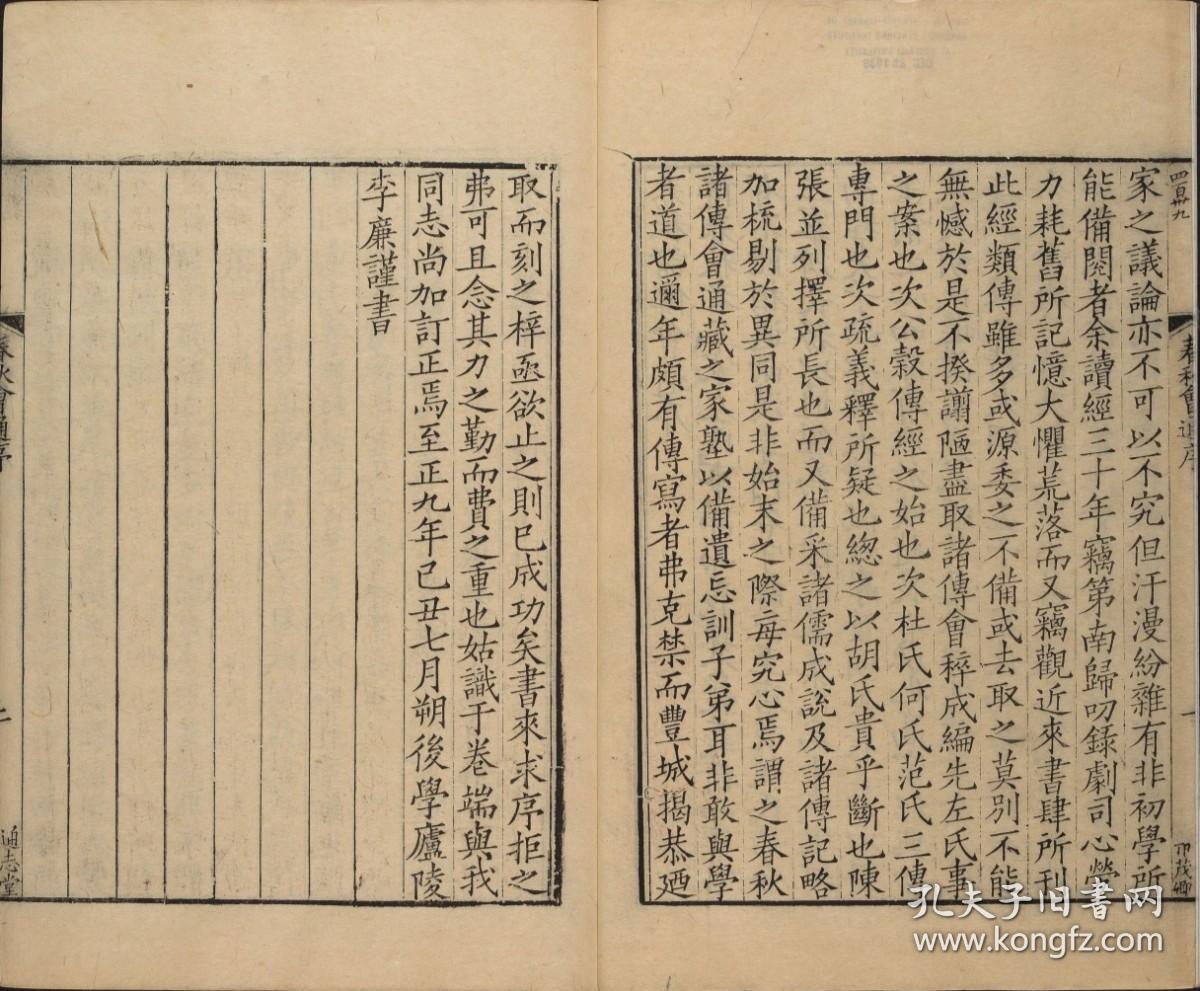 四百卅九
春秋會通序
一
家之議論亦不可以不究但汗漫紛雜有非初學所
能備閱者余讀經三十年竊第南歸叨錄劇司心勞
力耗舊所記憶大懼荒落而又竊觀近來書肆所刊
此經類傳雖多或源委之不備或去取之莫別不能
無憾於是不揆謭陋盡取諸傳會稡成編先左氏事
之案也次公穀傳經之始也次杜氏何氏范氏三傳
專門也次疏義釋所疑也總之以胡氏貴乎斷也陳
張並列擇所長也而又備采諸儒成說及諸傳記略
加梳剔於異同是非始末之際每究心焉謂之春秋
諸傳會通藏之家塾以備遺忘訓子弟耳非敢與學
者道也邇年頗有傳寫者弗克禁而豐城揭恭廼
取而刻之梓亟欲止之則已成功矣書來求序拒之
弗可且念其力之勤而費之重也姑識于卷端與我
同志尚加訂正焉至正九年己丑七月朔後學廬陵
李廉謹書
春秋會通序
二
通志堂
孔夫子旧书网
www.kongfz.com